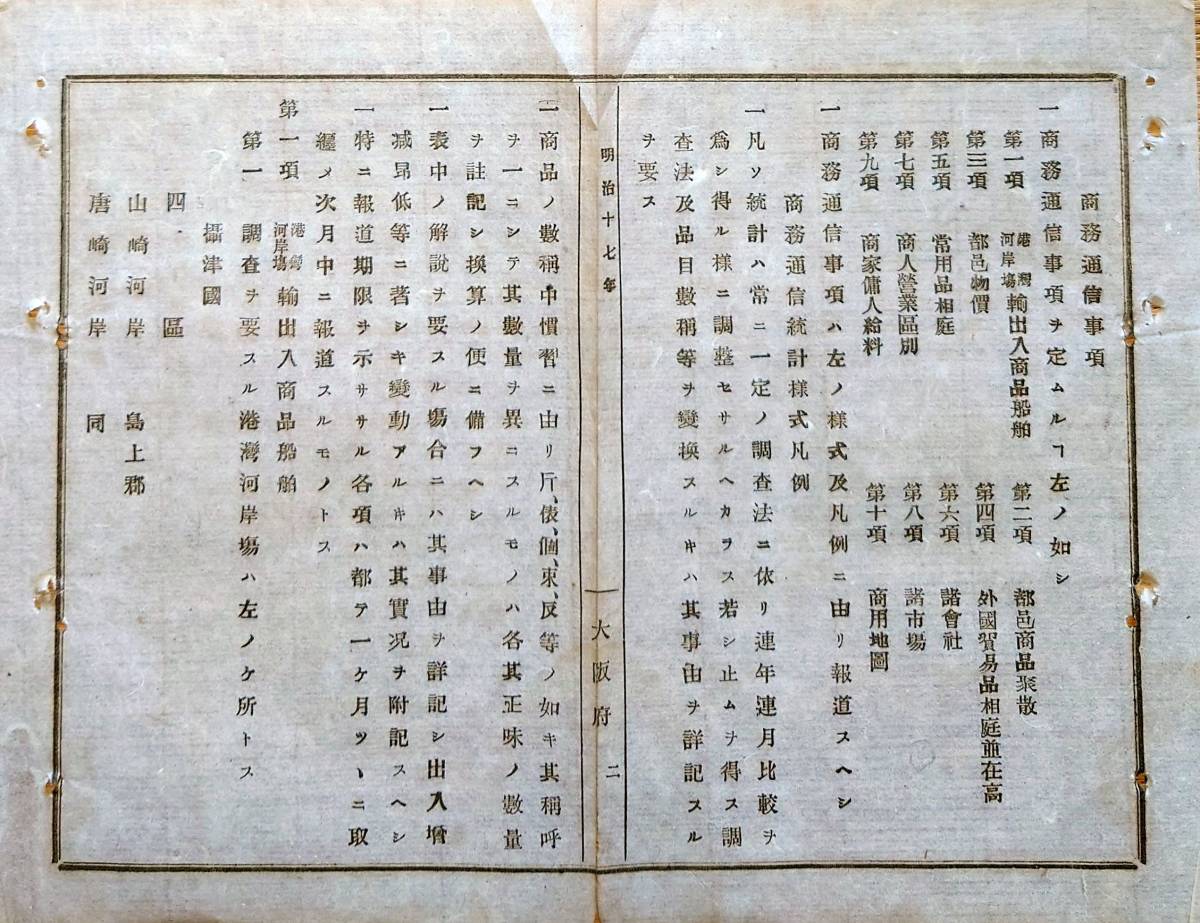 商務通信事項
一商務通信事項ヲ定ムルヿ左ノ如シ
第一項　港灣河岸塲輸出入商品船舶　第二項　都邑商品聚散
第三項　都邑物價　第四項　外國貿易品相庭並在高
第五項　常用品相庭　第六項　諸會社
第七項　商人營業區別　第八項　諸市場
第九項　商家傭人給料　第十項　商用地圖
一商務通信事項ハ左ノ様式及凡例ニ由リ報道スヘシ
商務通信統計様式凡例
一凡ソ統計ハ常ニ一定ノ調查法ニ依リ連年連月比較ヲ
爲シ得ル様ニ調整セサルヘカラス若シ止ムヲ得ス調
査法及品目數稱等ヲ變換スルキハ其事由ヲ詳記スル
ヲ要ス
明治十七年
大阪府　二
一商品ノ數稱中慣習ニ由リ斤、俵、個、束、反等ノ如キ其稱呼
ヲ一ニシテ其數量ヲ異ニスルモノハ各其正味ノ數量
ヲ註記シ換算ノ便ニ備フヘシ
一表中ノ解說ヲ要スル塲合ニハ其事由ヲ詳記シ出入增
减昻低等ニ著シキ變動アルキハ其實况ヲ附記スヘシ
一特ニ報道期限ヲ示サヽル各項ハ都テ一ケ月ツヽニ取
纒メ次月中ニ報道スルモノトス
第一項　港灣河岸塲輸出入商品船舶
第一　調查ヲ要スル港灣河岸塲ハ左ノケ所トス
攝津國
四區
山崎河岸　島上郡
唐崎河岸　同